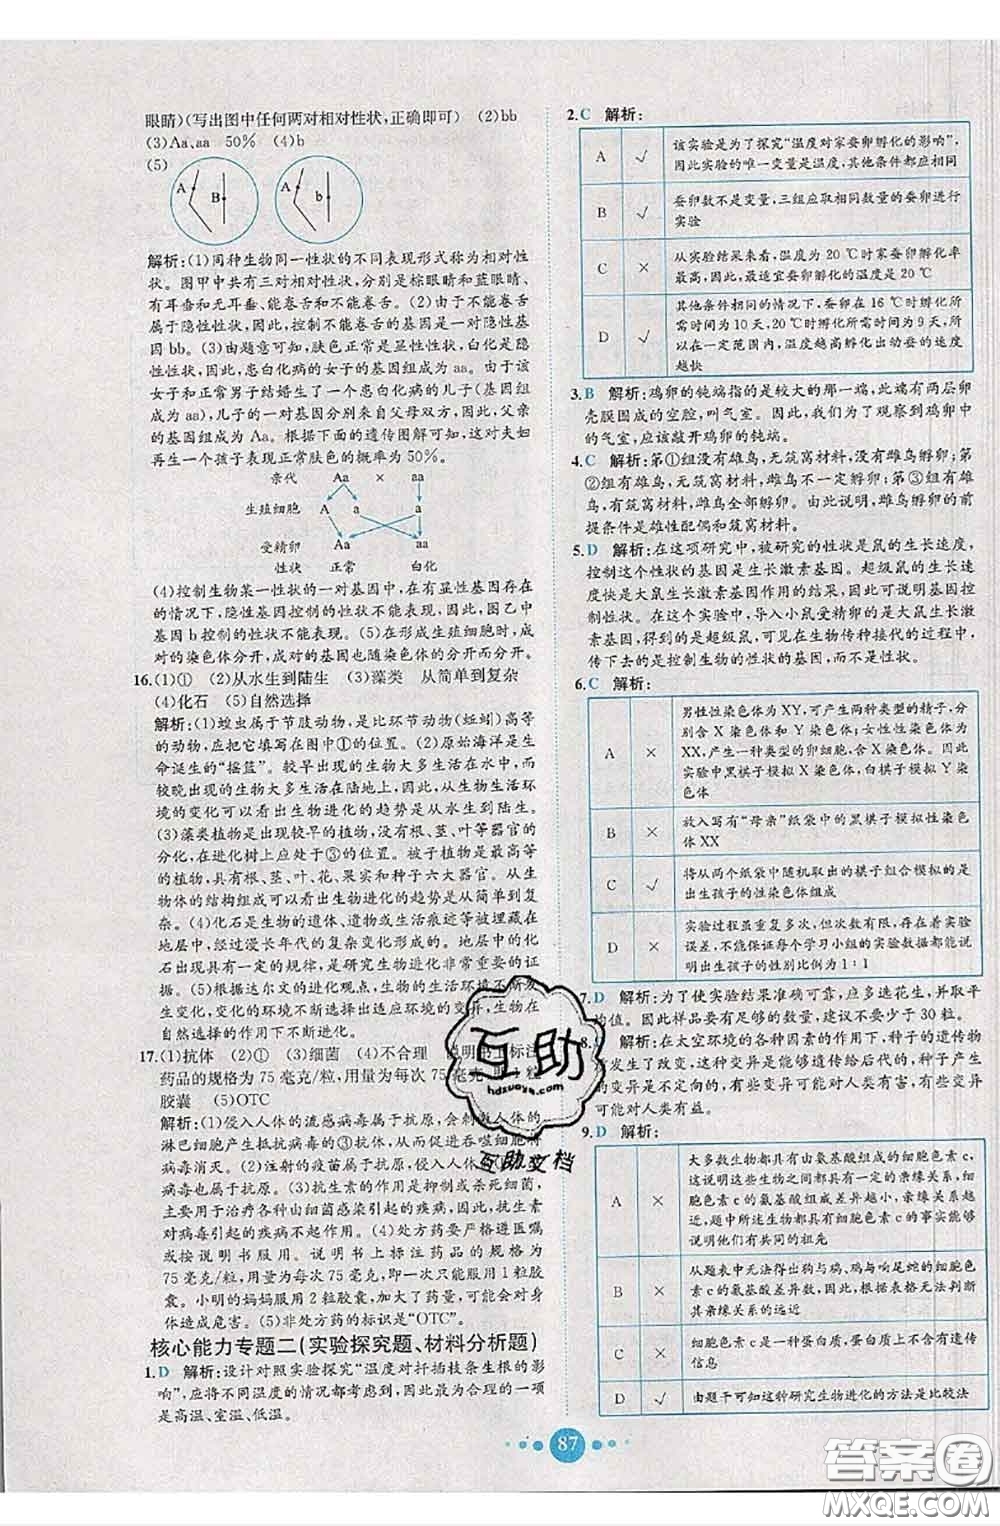 眼睛)(写出图中任何两对相对性状,正确即可) (2)bb
(3)Aa、aa 50% (4)b
(5)
A B b
解析:(1)同种生物同一性状的不同表现形式称为相对性
状。图甲中共有三对相对性状,分别是棕眼睛和蓝眼睛、
有耳垂和无耳垂、能卷舌和不能卷舌。(2)由于不能卷舌
属于隐性性状,因此,控制不能卷舌的基因组成一定是隐性
基因bb。(3)由题意可知,肤色正常是显性性状,白化是隐
性性状,因此,患白化病的女子的基因组成为aa。由于该
女子和正常男子结婚生了一个患白化病的儿子(基因组
成为aa),儿子的一对基因分别来自父母双方,因此,父亲
的基因组成为Aa。根据下面的遗传图解可知,这对夫妇
再生一个孩子表现正常肤色的概率为50%。
亲代 Aa × aa
生殖细胞 A a a
受精卵 Aa aa
性状 正常 白化
(4)控制生物某一性状的一对基因中,在有显性基因存在
的情况下,隐性基因控制的性状不能表现,因此,图乙中
基因b控制的性状不能表现。(5)在形成生殖细胞时,成
对的染色体分开,成对的基因也随染色体的分开而分开。
16.(1)① (2)从水生到陆生 (3)藻类 从简单到复杂
(4)化石 (5)自然选择
解析:(1)蝗虫属于节肢动物,是比环节动物(蚯蚓)高等
的动物,应把它填写在图中①的位置。(2)原始海洋是生
命诞生的“摇篮”。较早出现的生物大多生活在水中,而
较晚出现的生物大多生活在陆地上,因此,从生物生活环
境的变化可以看出生物进化的趋势是从水生到陆生。
(3)藻类植物是出现较早的植物,没有根、茎、叶等器官的
分化,在进化树上应处于③的位置。被子植物是最高等
的植物,具有根、茎、叶、花、果实和种子六大器官。从生
物体的结构组成可以看出生物进化的趋势是从简单到复
杂。(4)化石是生物的遗体、遗物或生活痕迹被埋藏在
地层中,经过漫长年代的复杂变化形成的。地层中的化
石出现具有一定的规律,是研究生物进化非常重要的证
据。(5)按照达尔文的进化观点,生物的生活环境不断发
生变化,生物在不断选择出适应环境的变异,生物在
自然选择的作用下不断进化。
17.(1)抗体 (2)① (3)细菌 (4)不合理 说明书上标注
药品的规格为75毫克/粒,用量为每次75毫克,即1粒
胶囊 (5)OTC
解析:(1)侵入人体的流感病毒属于抗原,会刺激人体的
淋巴细胞产生抵抗病毒的③抗体,从而促使吞噬细胞将
病毒消灭。(2)注射的疫苗属于减毒或灭活的①流感
病毒也属于抗原。(3)抗生素的作用是抑制或杀死细菌,
主要用于治疗各种由细菌感染引起的疾病,对其他病原
体引起的疾病不起作用。(4)处方药要严格遵医嘱
或按说明书服用。说明书上标注药品的规格为
75毫克/粒,用量为每次75毫克,所以每次应吃1粒
胶囊。小明的妈妈服用2粒胶囊,加大了药量,可能会对人
体造成危害。(5)非处方药的标识是“OTC”。
核心能力专题二(实验探究题、材料分析题)
1.D 解析:设计对照实验探究“温度对扦插枝条生根的影
响”,应将不同温度的情况都考虑到,最为合理的一项
是高温、室温、低温。
2.C 解析:
A √ 该实验是为了探究“温度对家蚕卵孵化的影响”,
因此实验的唯一变量是温度,其他条件都应相同
B √ 蚕卵数不是变量,三组应取相同数量的蚕卵进行
实验
C × 从实验结果来看,温度为20 ℃时家蚕卵孵化率
最高,因此,最适宜蚕卵孵化的温度是20 ℃
D √ 其他条件相同的情况下,蚕卵在16 ℃时孵化所
需时间为10天,20 ℃时孵化所需时间为9天,所
以在一定范围内,温度越高孵化出动蚕的速度
越快
3.B 解析:鸡卵的钝端指的是较大的那一端,此端有两层卵
壳膜围成的空腔,叫气室。因此,为了观察到鸡卵中
的气室,应该敲开鸡卵的钝端。
4.C 解析:第①组没有雄鸟,无筑窝材料,雌鸟不孵卵;第
②组有雄鸟,无筑窝材料,雌鸟大部分不孵卵;第③组有雄鸟,
有筑窝材料,雌鸟全部孵卵。由此说明,雌鸟孵卵的前
提条件是雄性配偶和筑窝材料。
5.D 解析:在这项研究中,被研究的性状是鼠的生长速度,
控制这一性状的基因是生长激素基因。超级鼠的生长速
度快是大鼠生长激素基因作用的结果,说明基因控
制性状。在这个实验中,导入小鼠受精卵的是大鼠生长激
素基因,得到的是超级鼠,可见在生物传种接代的过程中,
传下去的是控制生物的性状的基因,而不是性状。
6.C 解析:
A × 男性性染色体为XY,可产生两种类型的精子,分
别含X染色体和Y染色体;女性性染色体为
XX,产生一种类型的卵细胞,含X染色体。因此
实验中黑棋子模拟X染色体,白棋子模拟Y染
色体
B × 放入写有“母亲”纸袋中的黑棋子模拟性染色
体XX
C √ 将从两个纸袋中随机取出的棋子组合模拟的是
出生孩子的性染色体组成
D × 实验过程虽重复多次,但次数有限,存在着实验
误差,不能保证每个学习小组的实验数据都能说
明出生孩子的性别比例为1∶1
7.D 解析:为了使实验结果准确可靠,应多选花生,并取平
均值。因此样品要有足够的数量,建议不要少于30粒。
8. 解析:在太空环境的各种因素作用下,种子的遗传物
质发生了改变,这种变异是能够遗传给后代的,种子产生
的变异是不定向的,有些变异可能对人类有害,有些变异
可能对人类有益。
9.D 解析:
A × 大多数生物都具有由氨基酸组成的细胞色素c,
这说明这些生物之间都有或远或近的亲缘关系,
细胞色素c的氨基酸组成差异越小,亲缘关系越
近,通过大量的生物的细胞色素c的比较,能说
明他们有共同的祖先
B × 从题表中无法得出狗与鸡、鸡与响尾蛇的细胞色
素c的氨基酸差异,因此,根据表格无法判断
其亲缘关系的远近
C × 细胞色素c是一种蛋白质,蛋白质中不含有遗传
信息
D √ 由题干可知这种研究生物进化的方法是比较法
互助
hdzuoye.com
互助文档
87
答案圈
MXQE.COM